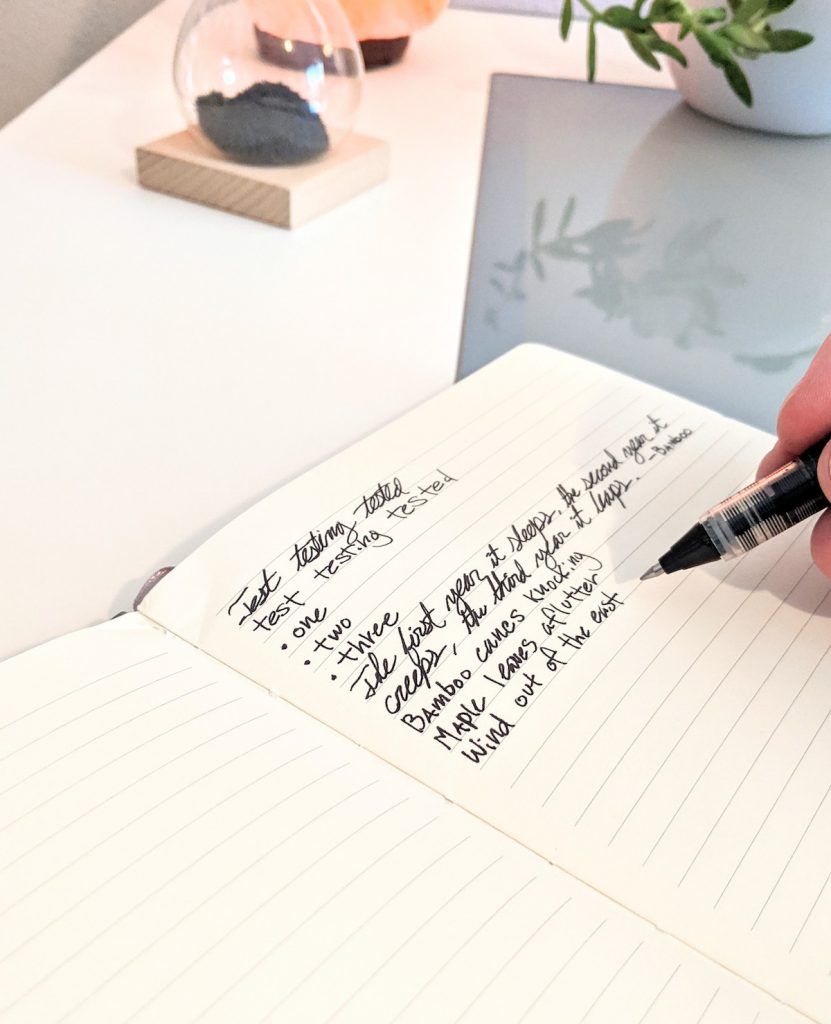 Test testing tested
test testing tested
• one
• two
• three
The first year it sleeps, the second year it
creeps, the third year it leaps. -Bamboo
Bamboo canes knocking
Maple leaves aflutter
Wind out of the east